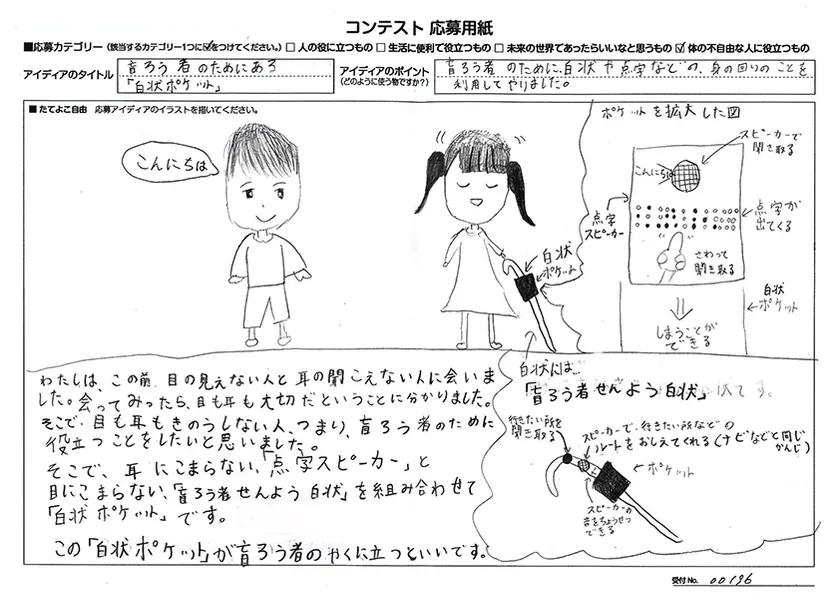 コンテスト 応募用紙
■応募カテゴリー（該当するカテゴリー1つに☑をつけてください。）□ 人の役に立つもの □ 生活に便利で役立つもの □ 未来の世界であったらいいなと思うもの ☑ 体の不自由な人に役立つもの
アイディアのタイトル
盲ろう者のためにある
「白状ポケット」
アイディアのポイント
（どのように使う物ですか？）
盲ろう者のために、白状や点字などの、身の回りのことを
利用してやりました。
■ たてよこ自由 応募アイディアのイラストを描いてください。
こんにちは
白状
ポケット
ポケットを拡大した図
スピーカーで
聞き取る
こんにちは
点字
スピーカー
点字が
出てくる
さわって
聞き取る
白状
ポケット
しまうことが
できる
わたしは、この前、目の見えない人と耳の聞こえない人に会いま
した。会ってみったら、目も耳も大切だということに分かりました。
そこで、目も耳もきのうしない人、つまり、盲ろう者のために
役立つことをしたいと思いました。
そこで、耳にこまらない、「点字スピーカー」と
目にこまらない、「盲ろう者せんよう白状」を組み合わせて
「白状ポケット」です。
この「白状ポケット」が盲ろう者のやくに立つといいです。
白状には…
「盲ろう者せんよう白状」
行きたい所を
聞き取る
スピーカーで、行きたい所などの
ルートをおしえてくれる（ナビなどと同じ
かんじ）
ポケット
スピーカーの
音をちょうせつ
できる
受付No. 00196